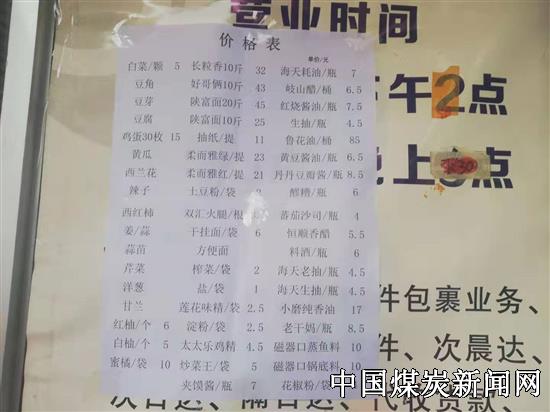 营业时间
价格表
单价/元
白菜/颗 5 长粒香10斤 32 海天耗油/瓶 7
豆角 好哥俩10斤 43 岐山醋/桶 6.5
豆芽 陕富面20斤 45 红烧酱油/瓶 7.5
豆腐 陕富面10斤 25 生抽/瓶 4.5
鸡蛋30枚 15 抽纸/提 11 鲁花油/桶 85
黄瓜 柔而雅绿/提 23 黄豆酱油/瓶 6.5
西兰花 柔而雅红/提 21 丹丹豆瓣酱/瓶 8.5
辣子 土豆粉/袋 醪糟/瓶 6
西红柿 双汇火腿/根 蕃茄沙司/瓶 4
姜/蒜 干挂面/袋 6 恒顺香醋 5.5
蒜苗 方便面 料酒/瓶 6
芹菜 榨菜/袋 2 海天老抽/瓶 4.5
洋葱 盐/袋 1 海天生抽/瓶 4.5
甘兰 莲花味精/袋 2.5 小磨纯香油 17
红柚/个 6 淀粉/袋 2.5 老干妈/瓶 8.5
白柚/个 5 太太乐鸡精 4.5 磁器口蒸鱼料 10
蜜橘/袋 10 炒菜王/袋 5 磁器口锅底料 10
夹馍酱/瓶 7 花椒粉/袋
午2点
晚上
件包裹业务、
件、次晨达、
次日达、隔日达、代收货款
中国煤炭新闻网